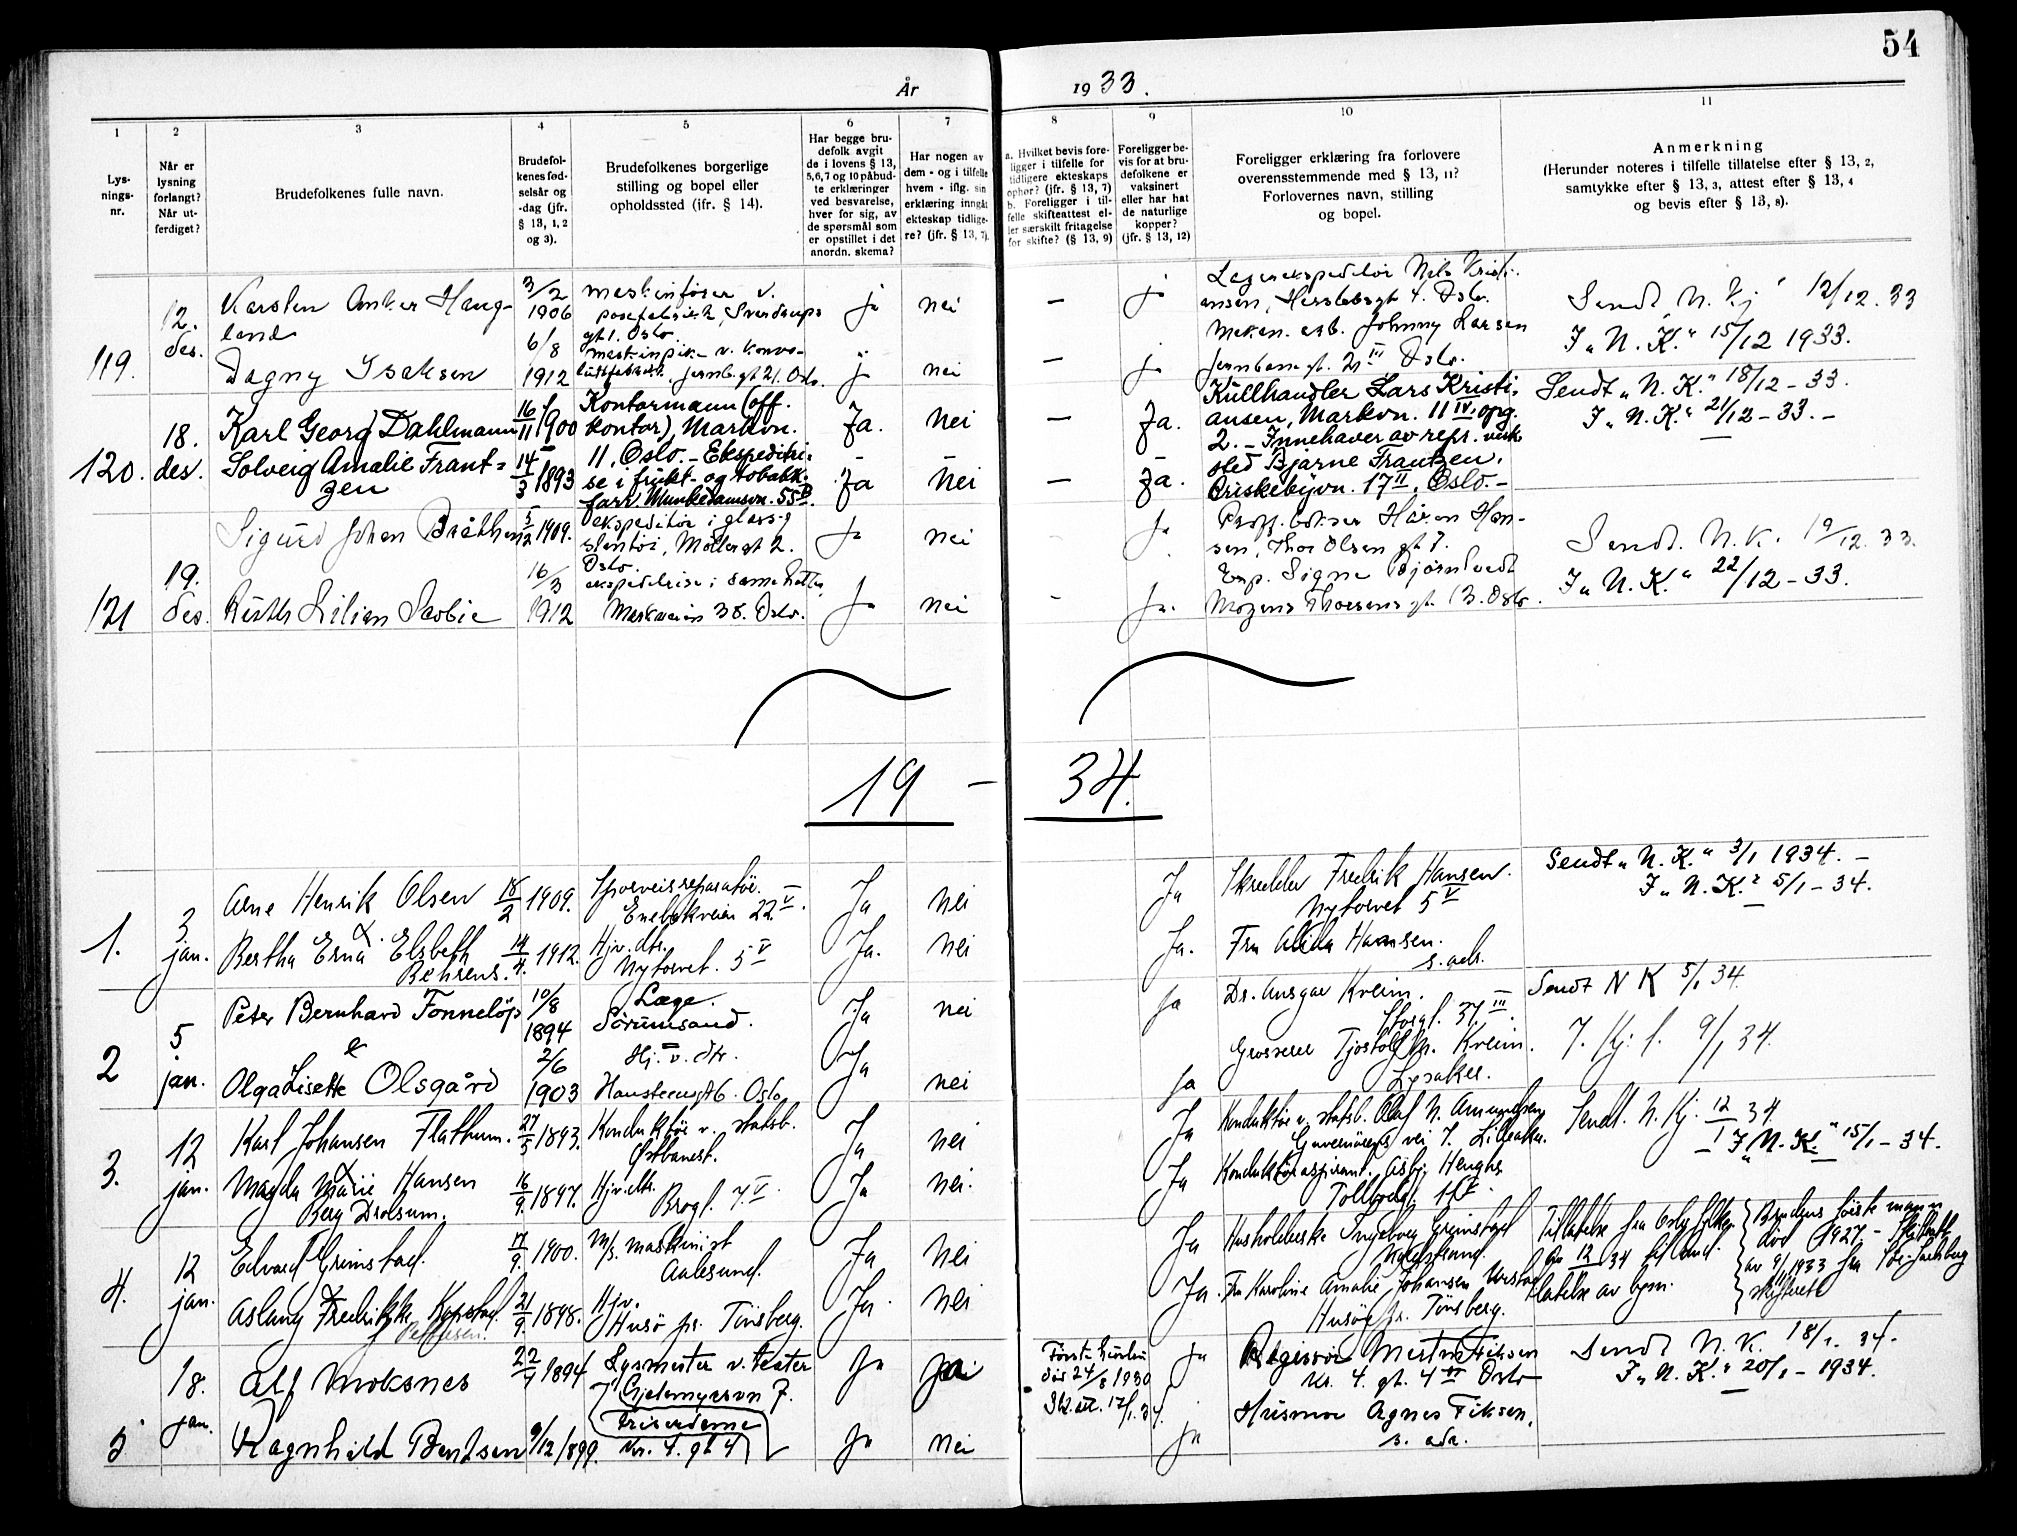 54
År 1933.
1
2
3
4
5
6
7
8
9
10
11
Lys-
nings-
nr.
Når er
lysning
forlangt?
Når ut-
ferdiget?
Brudefolkenes fulle navn.
Brudefol-
kenes fød-
selsår og
-dag (jfr.
§ 13, 1, 2
og 3).
Brudefolkenes borgerlige
stilling og bopel eller
opholdssted (jfr. § 14).
Har begge bru-
defolk avgit
de i lovens § 13,
5, 6, 7 og 10 påbud-
te erklæringer
ved besvarelse,
hver for sig, av
de spørsmål som
er opstillet i det
anordn. skema?
Har nogen av
dem - og i tilfelle
hvem - iflg. sin
erklæring inngåt
ekteskap tidlige-
re? (jfr. § 13, 7).
a. Hvilket bevis fore-
ligger i tilfelle for
tidligere ekteskaps
ophør? (jfr. § 13, 7)
b. Foreligger i til-
felle skifteattest el-
ler særskilt fritagelse
for skifte? (§ 13, 9)
Foreligger be-
vis for at bru-
defolkene er
vaksinert
eller har hat
de naturlige
kopper?
(jfr. § 13, 12)
Foreligger erklæring fra forlovere
overensstemmende med § 13, 11?
Forlovernes navn, stilling
og bopel.
Anmerkning
(Herunder noteres i tilfelle tillatelse efter § 13, 2,
samtykke efter § 13, 3, attest efter § 13, 4
og bevis efter § 13, 8).
119.
12.
des.
Karsten Anker Haug-
land
3/2
1906
maskinfører v.
posefabrikk, Sverdrups
gt 1. Oslo
ja
nei
–
j
Lagerekspeditør Nils Kristi-
ansen, Herslebsgt 4. Oslo.
Sendt N. Kj 12/12.33
Dagny Isaksen
6/8
1912
maskinpike v. konvo-
luttfabrikk. Jernb.gt 21. Oslo.
j
nei
–
j
Mekan. arb. Johnny Larsen
Jernbanegt. 21 III Oslo.
I „N. K.“ 15/12 1933.
120.
18.
des.
Karl Georg Dahlmann
16/11 1900
Kontormann (off.
kontor), Markvn.
11. Oslo. –
Ja.
Nei
–
Ja.
Kullhandler Lars Kristi-
ansen, Markvn. 11 IV, opg.
2. –
Sendt „N. K.“ 18/12 – 33.
I „N. K.“ 21/12 – 33. –
Solveig Amalie Frant-
zen
14/3 1893
Ekspeditri-
se i frukt- og tobakk-
forr. Munkedamsvn. 55
Ja
Nei
–
Ja.
Innehaver av repr.
Bjarne Frantzen,
Briskebyvn. 17 II, Oslo. –
121
19.
des.
Sigurd Johan Bråthen
5/2 1909.
ekspeditør i glass-
stentøi, Møllergt 2.
Oslo.
Ja
nei
ja
Håkon Han-
sen, Thor Olsens gt 7.
Sendt. N. K. 19/12.33.
Ruth Lilian
16/3
1912
ekspeditrise i samme
Markveien 38. Oslo.
Ja
nei
–
Ja.
Signe Bjørnstvedt
Mogens Thorsens gt. 13. Oslo.
I „N. K.“ 22/12 – 33.
19 – 34.
1.
3
jan.
Arne Henrik Olsen
18/2 1909.
Sporveisreparatør.
Enebakkveien 22 V.
Ja
nei
Ja
Skredder Fredrik Hansen.
Nytorvet 5 V
Sendt „N. K.“ 3/1 1934. –
I „N. K.“ 5/1 – 34.
&
Bertha Erna Elsbeth
Behrens.
14/4. 1912.
Hjv. dtr.
Nytorvet. 5 V
Ja.
nei
Ja.
Fru Alida Hansen.
s. adr.
2
5
jan.
Peter Bernhard Fonneløp
10/8
1894
Læge.
Sørumsand.
Ja
nei
ja
Dr. Ansgar Kreim.
Storgt. 37 III.
Sendt N K 5/1 34.
&
Olga Lisette Olsgård
2/6
1903
Hj. v. dtr.
Hausteensgt 6. Oslo
Ja
nei
ja
Grosserer Tjostolf M. Kreim.
Lysaker.
9/1 34.
3.
12
jan.
Karl Johansen Flathum.
27/5 1893.
Konduktør v. statsb.
Østbanest.
Ja
nei
Ja
Konduktør v. statsb. Olaf N. Amundsen
vei 7. Lilleaker.
Sendt. N. Kj. 12/1 34
– I „N. K.“ 15/1 – 34.
&
Magda Marie Hansen
Berg Drolsum.
16/9. 1897.
Hjv. dtr.
Brogt. 7 II.
Ja
nei.
Ja
Konduktøraspirant. Asbj.
Tollbodgt.
4.
12
jan.
Edvard Grimstad.
17/9. 1900.
M/s. maskinist
Aalesund.
Ja
Nei
Ja
Husholderske Ingeborg Grimstad
Tillatelse fra Oslo fylke
12/1 34
Brudens første mann
død 1927. –
&
Aslaug Fredrikke
21/9. 1898.
Hjv.
Husø pr. Tønsberg.
Ja.
nei
Ja.
Fru Karoline Amalie Johansen
Husøy pr. Tønsberg.
5
18.
jan.
Alf Moksnes
1894
Lysmester v. teater
Gjetemyrsvn 7.
Ja
ja
Første hustru
død 24/8 1930
Sk. att. 17/1.34.
ja
Regissør Martin Eriksen
Kr. 4. gt. 4 Oslo
Sendt N. K. 18/1. 34.
I „N. K.“ 20/1 – 1934.
Ragnhild Bentsen
9/12 1899.
Friserdame
Kr. 4. gt 4
Ja
nei
ja
Husmor Agnes Eriksen.
s. adr.